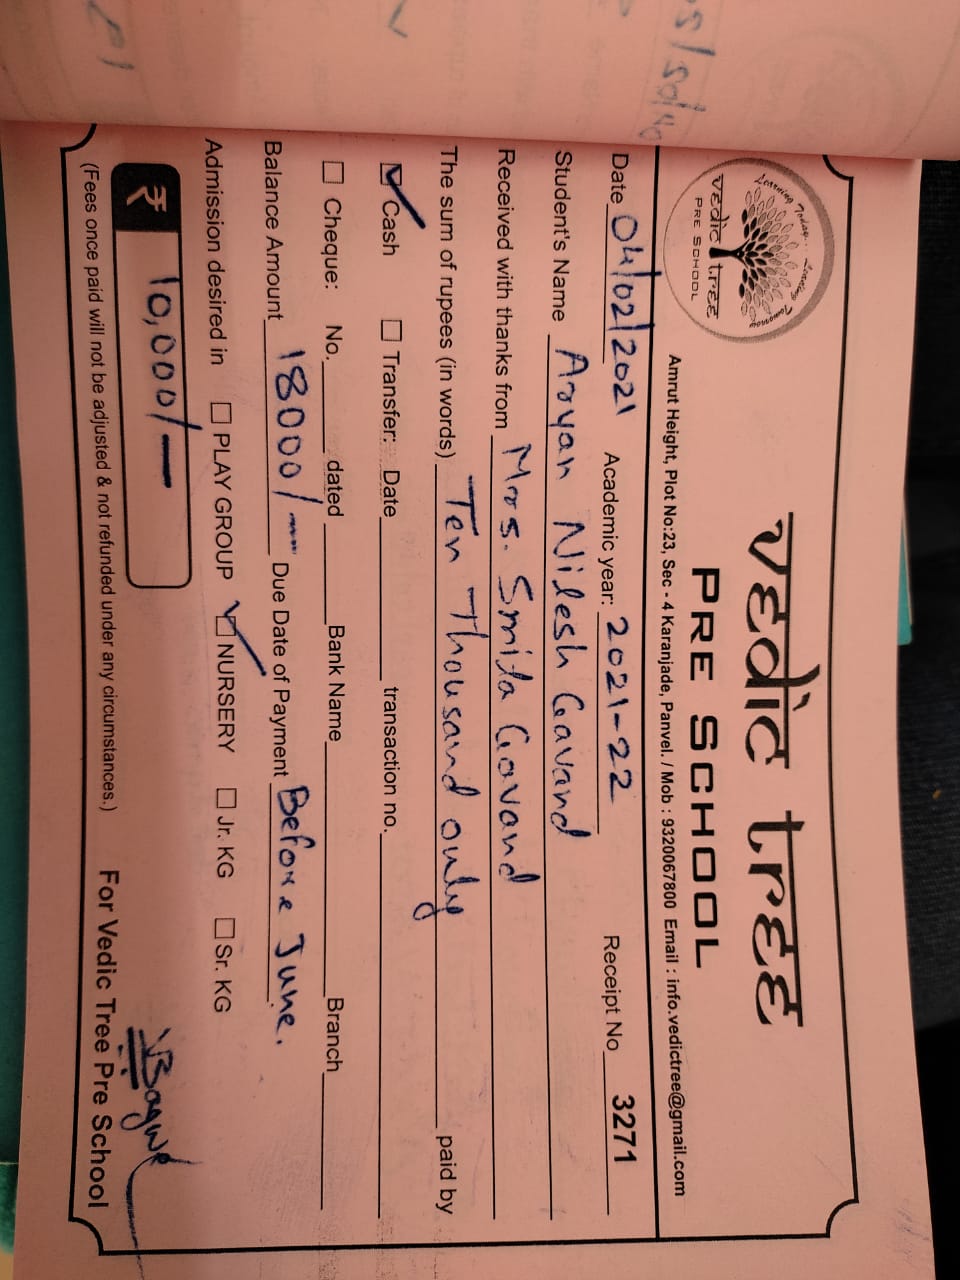 vedic tree
PRE SCHOOL
Learning Today... Leading Tomorrow
vedic tree
PRE SCHOOL
Amrut Height, Plot No:23, Sec - 4 Karanjade, Panvel. / Mob : 9320067800 Email : info.vedictree@gmail.com
Date 04/02/2021 Academic year: 2021-22 Receipt No 3271
Student's Name Aryan Nilesh Gavand
Received with thanks from Mrs. Smita Gavand
The sum of rupees (in words) Ten Thousand only paid by
Cash Transfer: Date transaction no.
Cheque: No. dated Bank Name Branch
Balance Amount 18000/- Due Date of Payment Before June.
Admission desired in PLAY GROUP NURSERY Jr. KG Sr. KG
₹ 10,000/-
(Fees once paid will not be adjusted & not refunded under any circumstances.) For Vedic Tree Pre School